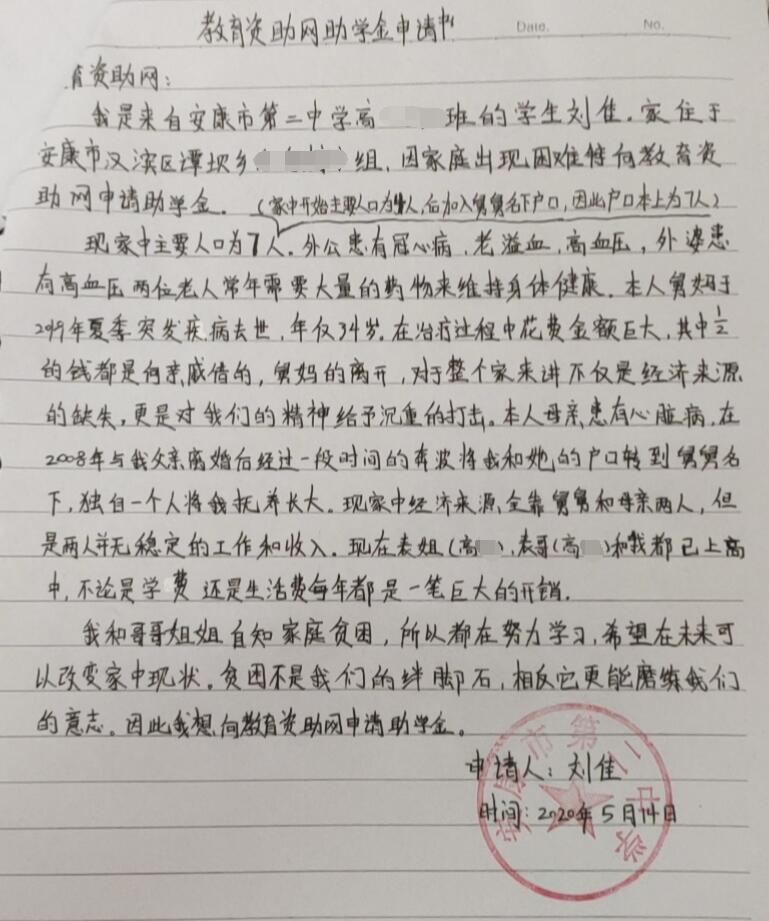 教育资助网助学金申请书
Date.
No.
育资助网:
我是来自安康市第二中学高 班的学生刘佳.家住于
安康市汉滨区谭坝乡 组,因家庭出现困难特向教育资
助网申请助学金.(家中开始主要人口为4人,后加入舅舅名下户口,因此户口本上为7人)
现家中主要人口为7人.外公患有冠心病,老溢血,高血压,外婆患
有高血压两位老人常年需要大量的药物来维持身体健康.本人舅妈于
2019年夏季突发疾病去世,年仅34岁.在治疗过程中花费金额巨大,其中½
的钱都是向亲戚借的,舅妈的离开,对于整个家来讲不仅是经济来源
的缺失,更是对我们的精神给予沉重的打击。本人母亲患有心脏病.在
2008年与我父亲离婚后经过一段时间的奔波将我和她的户口转到舅舅名
下,独自一个人将我抚养长大。现家中经济来源全靠舅舅和母亲两人,但
是两人并无稳定的工作和收入.现在表姐(高 ).表哥(高 )和我都已上高
中,不论是学费还是生活费每年都是一笔巨大的开销.
我和哥哥姐姐自知家庭贫困,所以都在努力学习,希望在未来可
以改变家中现状.贫困不是我们的绊脚石,相反它更能磨练我们
的意志。因此我想向教育资助网申请助学金。
申请人:刘佳
时间:2020年5月14日
安康市第二中学